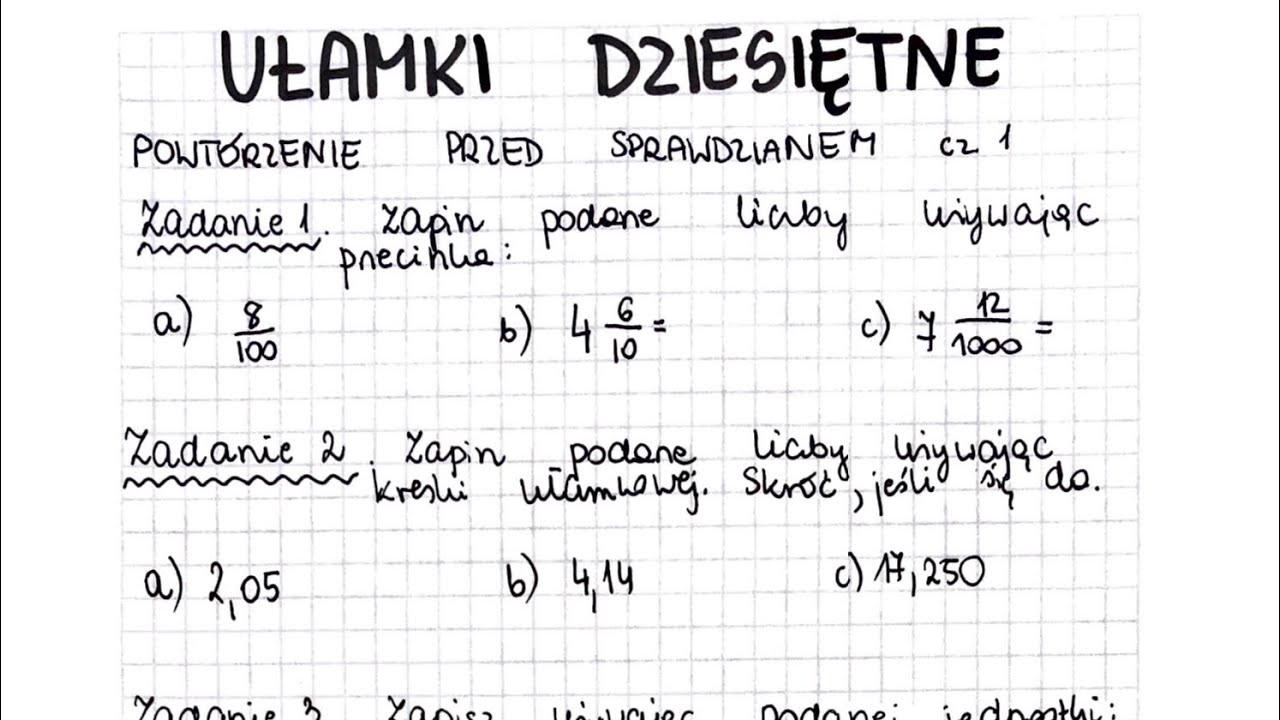 UŁAMKI DZIESIĘTNE
POWTÓRZENIE PRZED SPRAWDZIANEM cz 1
Zadanie 1. Zapisz podane liczby używając
przecinka:
a) 8/100 b) 4 6/10 = c) 7 12/1000 =
Zadanie 2. Zapisz podane liczby używając
kreski ułamkowej. Skróć, jeśli się da.
a) 2,05 b) 4,14 c) 17,250
Zadanie 3. Zapisz używając podanej jednostki: